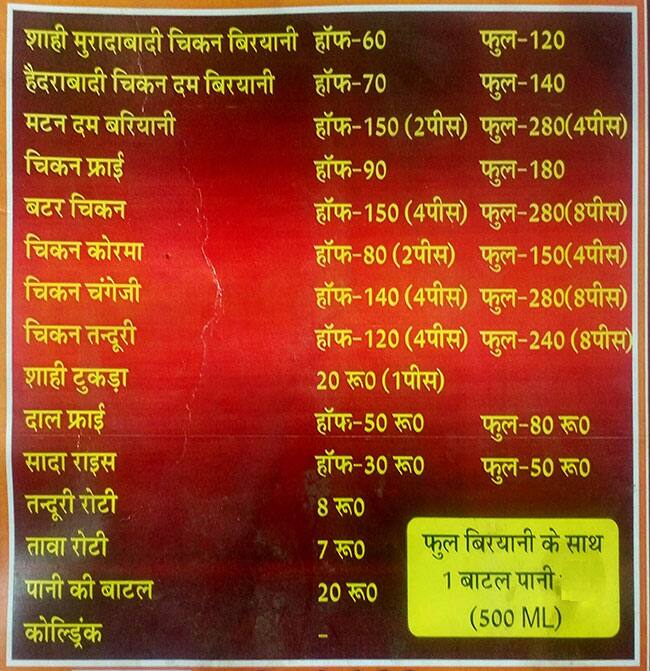 शाही मुरादाबादी चिकन बिरयानी हॉफ-60 फुल-120
हैदराबादी चिकन दम बिरयानी हॉफ-70 फुल-140
मटन दम बरियानी हॉफ-150 (2पीस) फुल-280(4पीस)
चिकन फ्राई हॉफ-90 फुल-180
बटर चिकन हॉफ-150 (4पीस) फुल-280(8पीस)
चिकन कोरमा हॉफ-80 (2पीस) फुल-150(4पीस)
चिकन चंगेजी हॉफ-140 (4पीस) फुल-280(8पीस)
चिकन तन्दूरी हॉफ-120 (4पीस) फुल-240 (8पीस)
शाही टुकड़ा 20 रू0 (1पीस)
दाल फ्राई हॉफ-50 रू0 फुल-80 रू0
सादा राइस हॉफ-30 रू0 फुल-50 रू0
तन्दूरी रोटी 8 रू0
तावा रोटी 7 रू0
पानी की बाटल 20 रू0
कोल्ड्रिंक -
फुल बिरयानी के साथ
1 बाटल पानी
(500 ML)